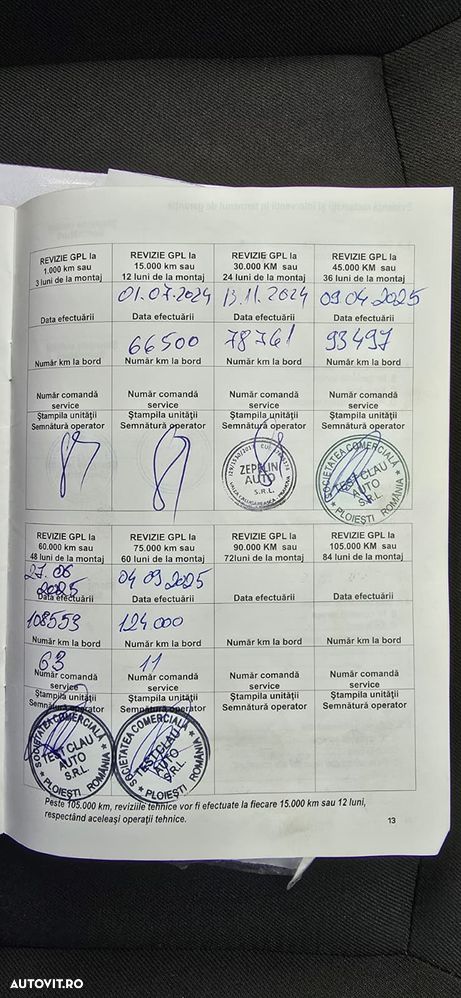 REVIZIE GPL la
1.000 km sau
3 luni de la montaj
REVIZIE GPL la
15.000 km sau
12 luni de la montaj
REVIZIE GPL la
30.000 KM sau
24 luni de la montaj
REVIZIE GPL la
45.000 KM sau
36 luni de la montaj
01.07.2024
13.11.2024
09.04.2025
Data efectuării
Data efectuării
Data efectuării
Data efectuării
66500
78761
93497
Număr km la bord
Număr km la bord
Număr km la bord
Număr km la bord
Număr comandă
service
Număr comandă
service
Număr comandă
service
Număr comandă
service
Ştampila unităţii
Semnătură operator
Ştampila unităţii
Semnătură operator
Ştampila unităţii
Semnătură operator
Ştampila unităţii
Semnătură operator
ZEPELIN
AUTO
S.R.L.
SOCIETATEA COMERCIALĂ
TEST CLAU
AUTO
S.R.L.
* PLOIEŞTI ROMÂNIA *
REVIZIE GPL la
60.000 km sau
48 luni de la montaj
REVIZIE GPL la
75.000 km sau
60 luni de la montaj
REVIZIE GPL la
90.000 KM sau
72luni de la montaj
REVIZIE GPL la
105.000 KM sau
84 luni de la montaj
27.06
2025
04 09 2025
Data efectuării
Data efectuării
Data efectuării
Data efectuării
108553
124000
Număr km la bord
Număr km la bord
Număr km la bord
Număr km la bord
63
11
Număr comandă
service
Număr comandă
service
Număr comandă
service
Număr comandă
service
Ştampila unităţii
Semnătură operator
Ştampila unităţii
Semnătură operator
Ştampila unităţii
Semnătură operator
Ştampila unităţii
Semnătură operator
SOCIETATEA COMERCIALĂ
TEST CLAU
AUTO
S.R.L.
* PLOIEŞTI ROMÂNIA *
SOCIETATEA COMERCIALĂ
TEST CLAU
AUTO
S.R.L.
* PLOIEŞTI ROMÂNIA *
Peste 105.000 km, reviziile tehnice vor fi efectuate la fiecare 15.000 km sau 12 luni,
respectând aceleaşi operaţii tehnice.
13
AUTOVIT.RO